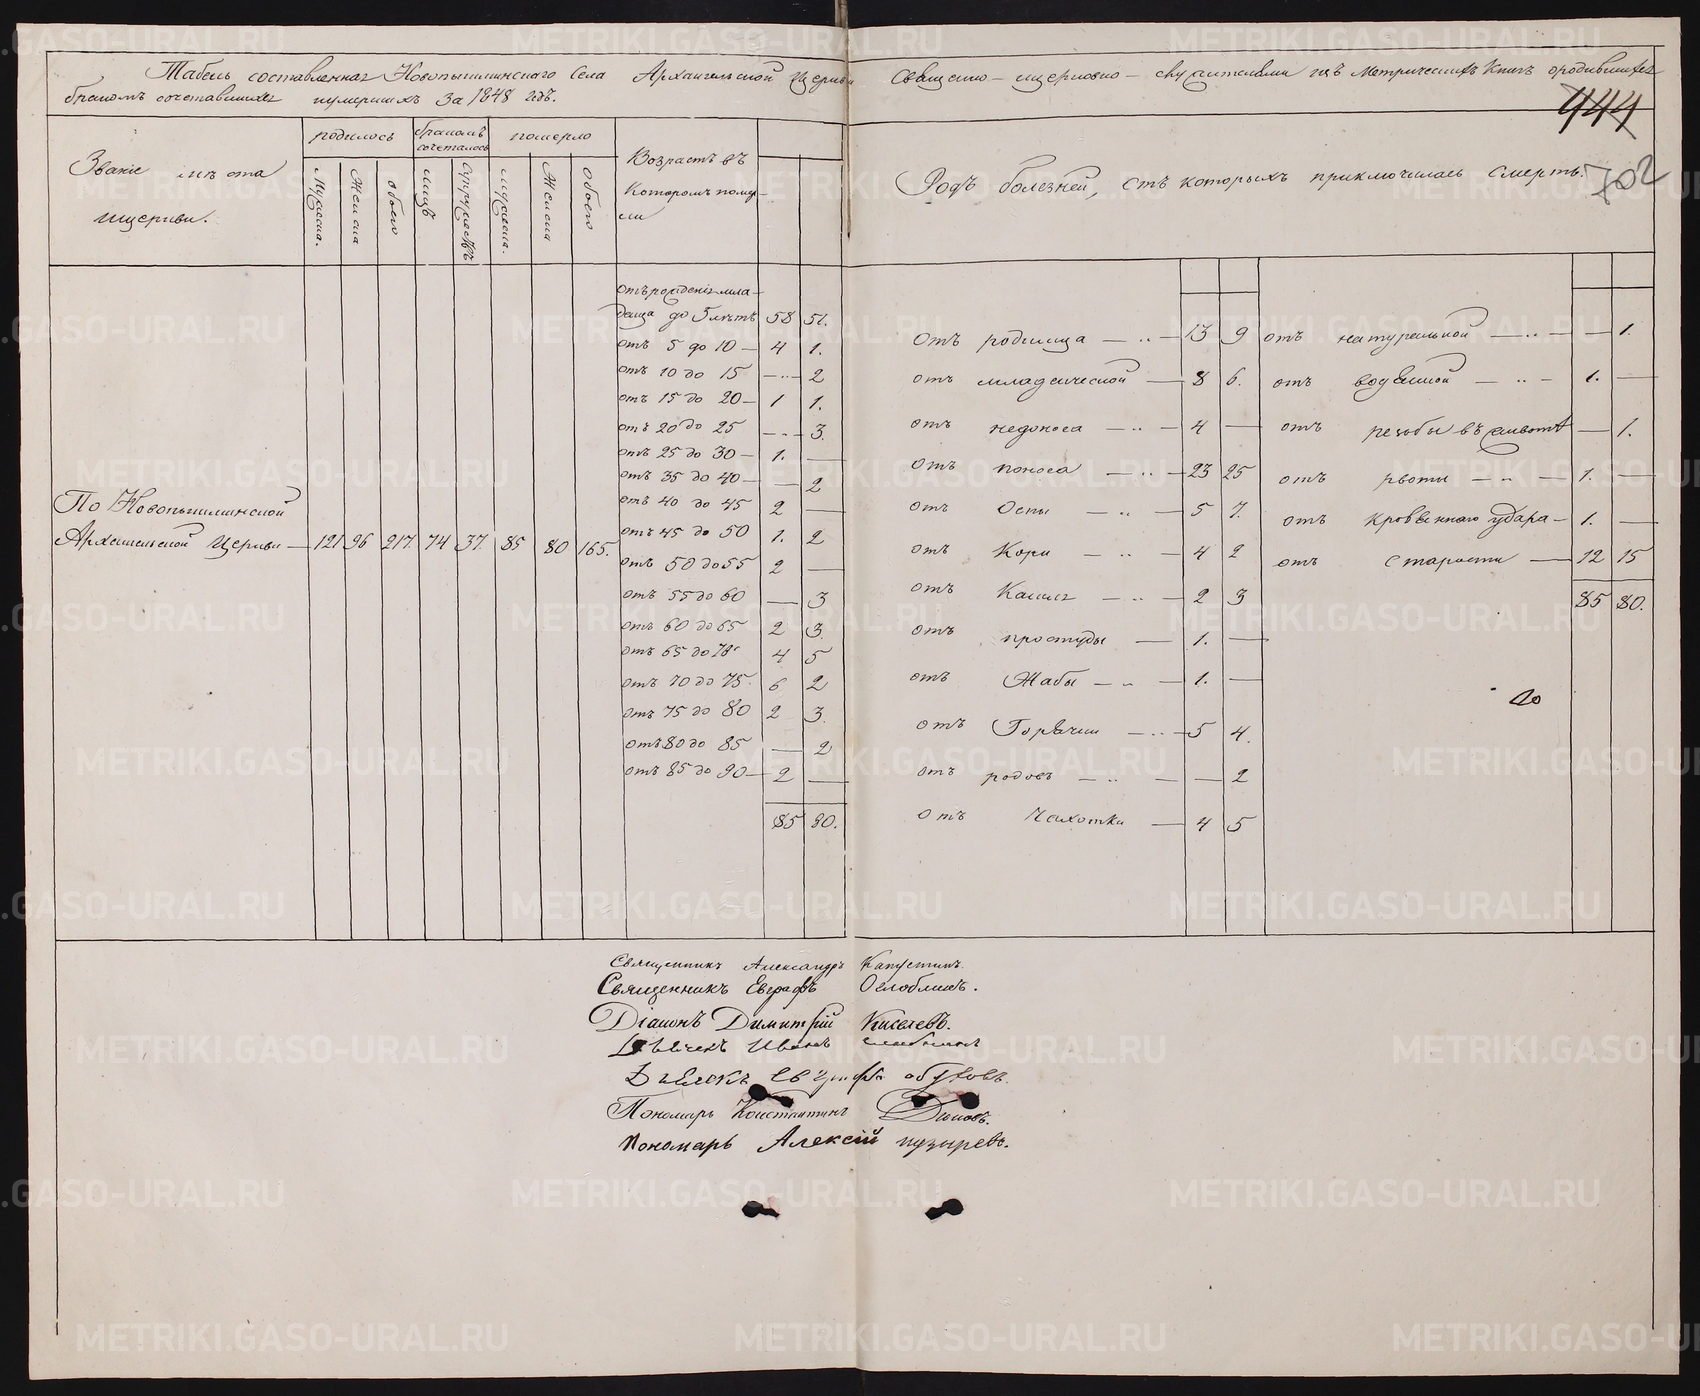 Табель составленная Новопышминскаго Села Архангельской Церкви Священно-церковно-служителями изъ Метрическихъ Книгъ ородившихся
бракомъ сочетавшихся иумершихъ За 1848 годъ.
444
702
Званіе мѣста
ицеркви.
родилось
бракомъ сочеталось
померло
Возрастъ въ
Которомъ помер-
ли
Родъ болезней, отъ которыхъ приключилась Смерть.
Мужеска.
Женска
обоего
лицъ
Супружествъ
мужеска.
Женска
обоего
По Новопышминской
Архангельской Церкви — 121 96 217. 74 37. 85 80 165.
отърожденія мла-
денца до 5 лѣтъ 58 51.
отъ 5 до 10 — 4 1.
отъ 10 до 15 — 2
отъ 15 до 20 — 1 1.
отъ 20 до 25 — 3.
отъ 25 до 30 — 1. —
отъ 35 до 40 — — 2
отъ 40 до 45 2 —
отъ 45 до 50 1. 2
отъ 50 до 55 2 —
отъ 55 до 60 — 3
отъ 60 до 65 2 3.
отъ 65 до 70 4 5
отъ 70 до 75. 6 2
отъ 75 до 80 2 3.
отъ 80 до 85 — 2
отъ 85 до 90 — 2 —
85 80.
отъ родимца — 13 9
отъ младенческой — 8 6.
отъ недоноса — 4 —
отъ поноса — 23 25
отъ Оспы — 5 7.
отъ Кори — 4 2
отъ Кашля — 2 3
отъ простуды — 1. —
отъ Жабы — 1. —
отъ Горячки — 5 4.
отъ родовъ — — 2
отъ Чахотки — 4 5
отъ натуральной — — 1.
отъ водяной — 1. —
отъ резьбы въ животѣ — 1.
отъ рвоты — 1. —
отъ Кровянаго удара — 1. —
отъ старости — 12 15
85 80.
Священникъ Александръ Капустинъ.
Священникъ Евграфъ Оглоблинъ.
Діаконъ Димитрій Киселевъ.
Дьячекъ Иванъ
Дьячекъ
Пономарь Константинъ
Пономарь Алексій пузыревъ.
METRIKI.GASO-URAL.RU